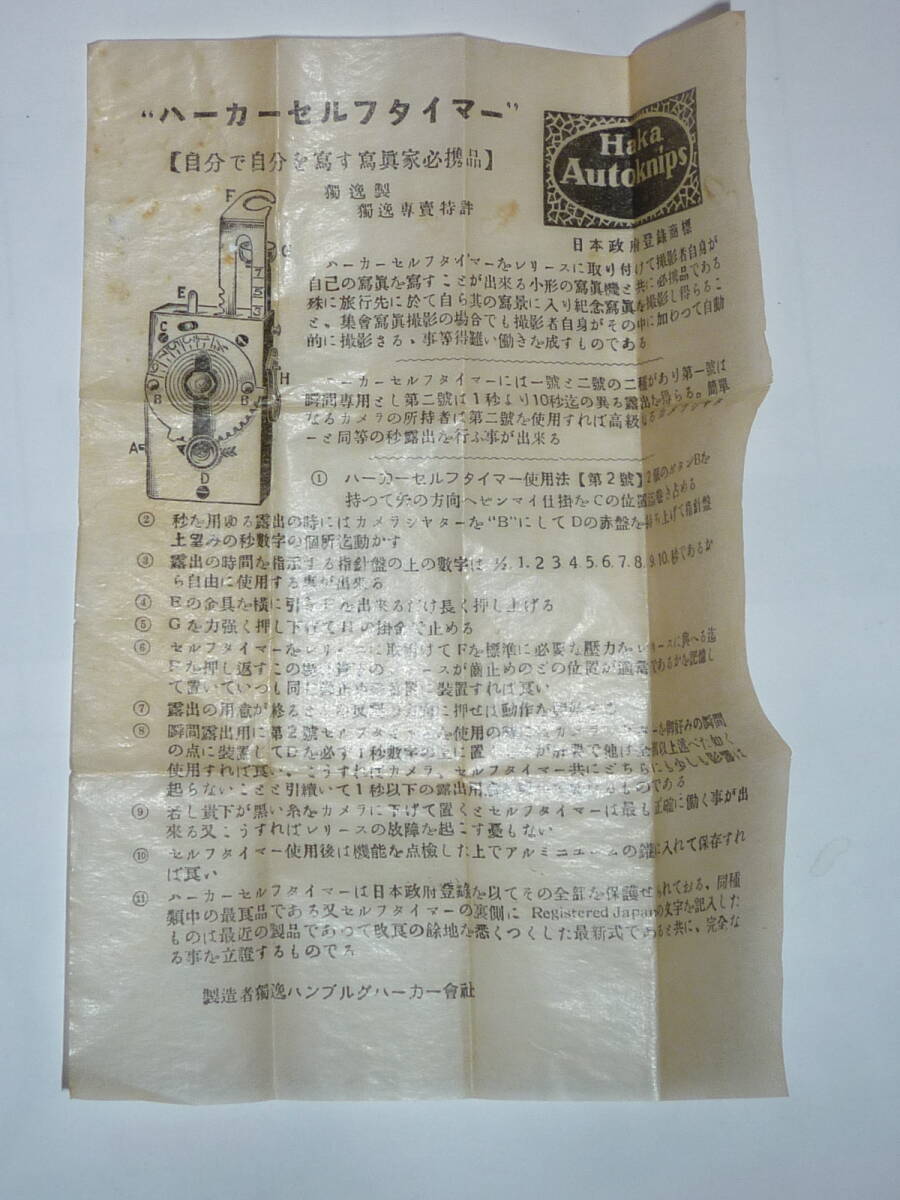 “ハーカーセルフタイマー”
【自分で自分を寫す寫眞家必携品】
獨逸製
獨逸專賣特許
Haka
Autoknips
日本政府登録商標
F
G
7
5
3
E
C
H
B
B
A
D
ハーカーセルフタイマーをレリースに取り付けて撮影者自身が
自己の寫眞を寫すことが出來る小形の寫眞機と共に必携品である
殊に旅行先に於て自ら其の寫景に入り紀念寫眞を撮影し得らるこ
と、集會寫眞撮影の場合でも撮影者自身がその中に加わつて自動
的に撮影さる、事等得難い働きを成すものである
ハーカーセルフタイマーには一號と二號の二種があり第一號は
瞬間専用とし第二號は1秒より10秒迄の異る露出を得らる。簡單
なるカメラの所持者は第二號を使用すれば高級なるカメラシヤタ
ーと同等の秒露出を行ふ事が出來る
① ハーカーセルフタイマー使用法【第2號】2個のボタンBを
持つて矢の方向へゼンマイ仕掛をCの位置迄巻き占める
② 秒を用ゆる露出の時にはカメラシヤターを“B”にしてDの赤盤を持ち上げて指針盤
上望みの秒數字の個所迄動かす
③ 露出の時間を指示する指針盤の上の數字は ½.1.2 3 4.5.6.7.8.9.10.秒であるか
ら自由に使用する事が出來る
④ Eの金具を橫に引きFを出來るだけ長く押し上げる
⑤ Gを力強く押し下げてHの掛金で止める
⑥ セルフタイマーをレリースに取附けてFを標準に必要な壓力をレリースに與へる迄
Fを押し返すこの際 ースが齒止めのどの位置が適當であるかを記憶し
て置いていつも同じ齒止め 裝置すれば良い
⑦ 露出の用意が終ると に押せば動作を
⑧ 瞬間露出用に第2號セルフタイマーを使用の時には を御好みの瞬間
の点に裝置してDを必ず1秒數字の上に置く が肝要で他は全部以上述べた如く
使用すれば良い、こうすればカメラ、セルフタイマー共にどちらにも少しも影響は
起らないことと引續いて1秒以下の露出用 ものである
⑨ 若し貴下が黑い糸をカメラに下げて置くとセルフタイマーは最も正確に働く事が出
來る又こうすればレリースの故障を起こす憂もない
⑩ セルフタイマー使用後は機能を点檢した上でアルミニユームの鑵に入れて保存すれ
ば良い
⑪ ハーカーセルフタイマーは日本政府登錄を以てその全部を保護せられておる、同種
類中の最良品である又セルフタイマーの裏側に Registered Japanの文字を記入した
ものは最近の製品であつて改良の餘地を悉くつくした最新式であると共に、完全な
る事を立證するものでる
製造者獨逸ハンブルグハーカー會社